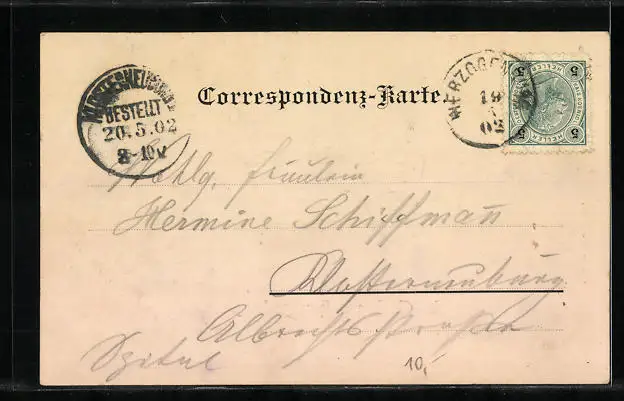 KLOSTERNEUBURG
BESTELLT
20.5.02
8-10V
Correspondenz-Karte
HERZOGEN
19
5
02
5 HELLER 5
Wohlg. Fräulein
Hermine Schiffman̄
Klosterneuburg
Albrechtsstrasse
Spital
10,-